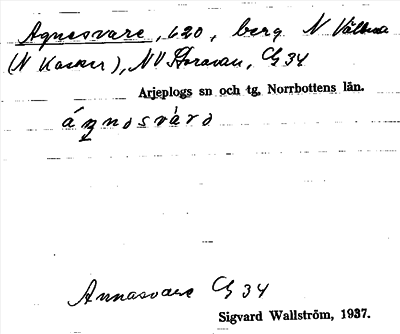 Agnesvare, 620, berg N Välbma
(N Kasker), NV Storavan, Cg 34
Arjeplogs sn och tg, Norrbottens län.
ágnəsvàrə
Annasvare Cg 34
Sigvard Wallström, 1937.